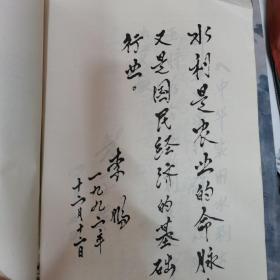 水利是农业的命脉
又是国民经济的基础
行业。
李鹏
一九九一年
十一月十二日